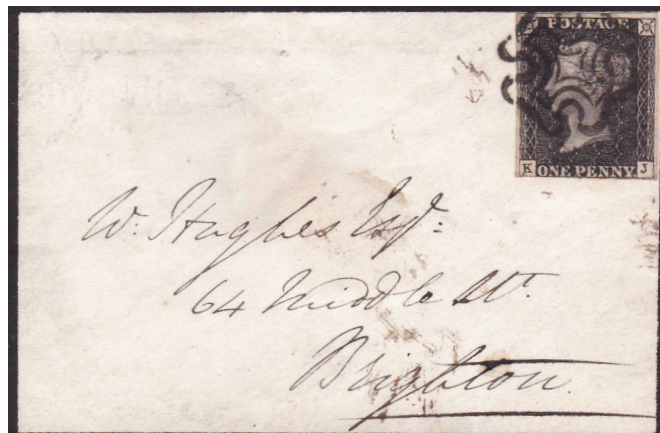 POSTAGE
K ONE PENNY J
W. Hughes Esqr:
64 Middle St.
Brighton.